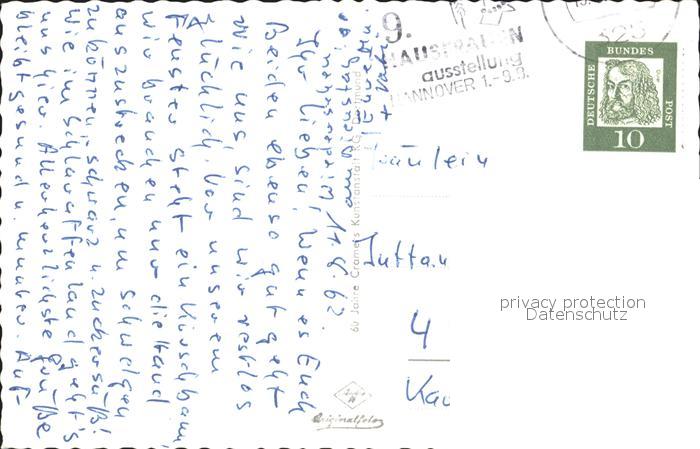 9.
HAUSFRAUEN
ausstellung
HANNOVER 1.-9.9.
DEUTSCHE
BUNDES
POST
10
Fräulein
Jutta
4
privacy protection
Datenschutz
60 Jahre Cramers Kunstanstalt KG, Dortmund
Originalfoto
11.8.62.
Ihr Lieben, wenn es Euch
Beiden ebenso gut geht
wie uns, sind wir restlos
glücklich. Vor unserem
Fenster steht ein Kirschbaum,
wir brauchen nur die Hand
auszustrecken, um schwelgen
zu können, schwarz u. zuckersüß!
Wie im Schlaraffenland geht's
uns hier. Allerherzlichste Grüße
bleibt gesund u. munter. Auf